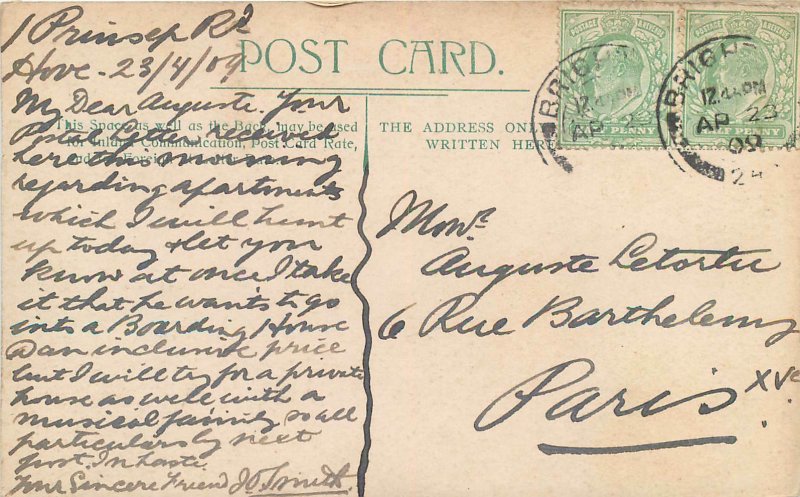 1 Prinsep Rd
Hove - 23/4/09
POST CARD.
My Dear Auguste. Your
Post Card received
here this morning
regarding apartments
which I will hunt
up today & let you
know at once I take
it that he wants to go
into a Boarding House
@ an inclusive price
but I will try for a private
house as well with a
musical family so all
particulars by next
post. In haste.
Your Sincere Friend J O Smith
This Space, as well as the Back, may be used
for Inland Communication, Post Card Rate,
THE ADDRESS ONLY
WRITTEN HERE
Monsr
Auguste Letortu
6 Rue Barthelemy
Paris XVe.
POSTAGE REVENUE
POSTAGE REVENUE
HALF PENNY
HALF PENNY
BRIGHT
12.44PM
AP 23
BRIGHT
12.44PM
AP 23
09